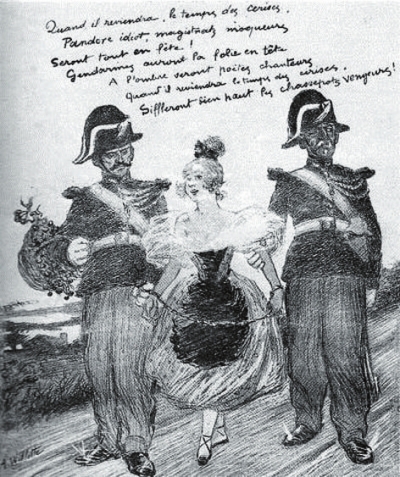 Quand il reviendra, le temps des cerises,
Pandore idiot, magistrats moqueurs
Seront tout en fête !
Gendarmes auront la folie en tête
A l'ombre seront poëtes chanteurs
Quand il reviendra le temps des cerises,
Siffleront bien haut les chassepots vengeurs!
A. Willette